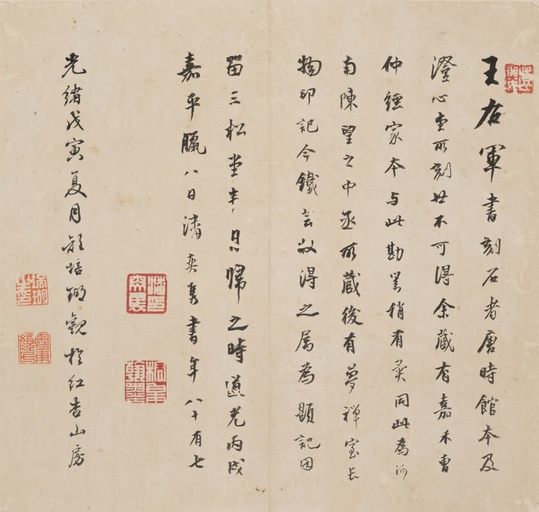 王右軍書刻石者唐時館本及
澄心堂所刻世不可得余藏有嘉禾曹
仲經家本與此勘異稍有異同此為河
南陳望之中丞所藏後有夢禪室長
物印記今鐵芸收得之屬為題記因
留三松堂半月歸之時道光丙戌
嘉平臘八日潘奕雋書年八十有七
光緒戊寅夏月 培瑚觀於紅杏山房